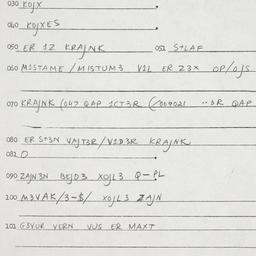 030 KOJX
040 KOJXES
050 ER 1Z KRAJNK 051 S+LAF
060 M1STAME / M1STUM3 V1L ER Z3X OP/OJS
070 KRAJNK (047 QAP 1CT3R QAP
080 ER S+3N VAJT3R/V1D3R KRAJNK
081 O
090 ZAJN3N BEJD3 XOJL3 Q-PL
100 M3VAK/3-$/ XOJL3 ZAJN
101 VERN VUS ER MAXT